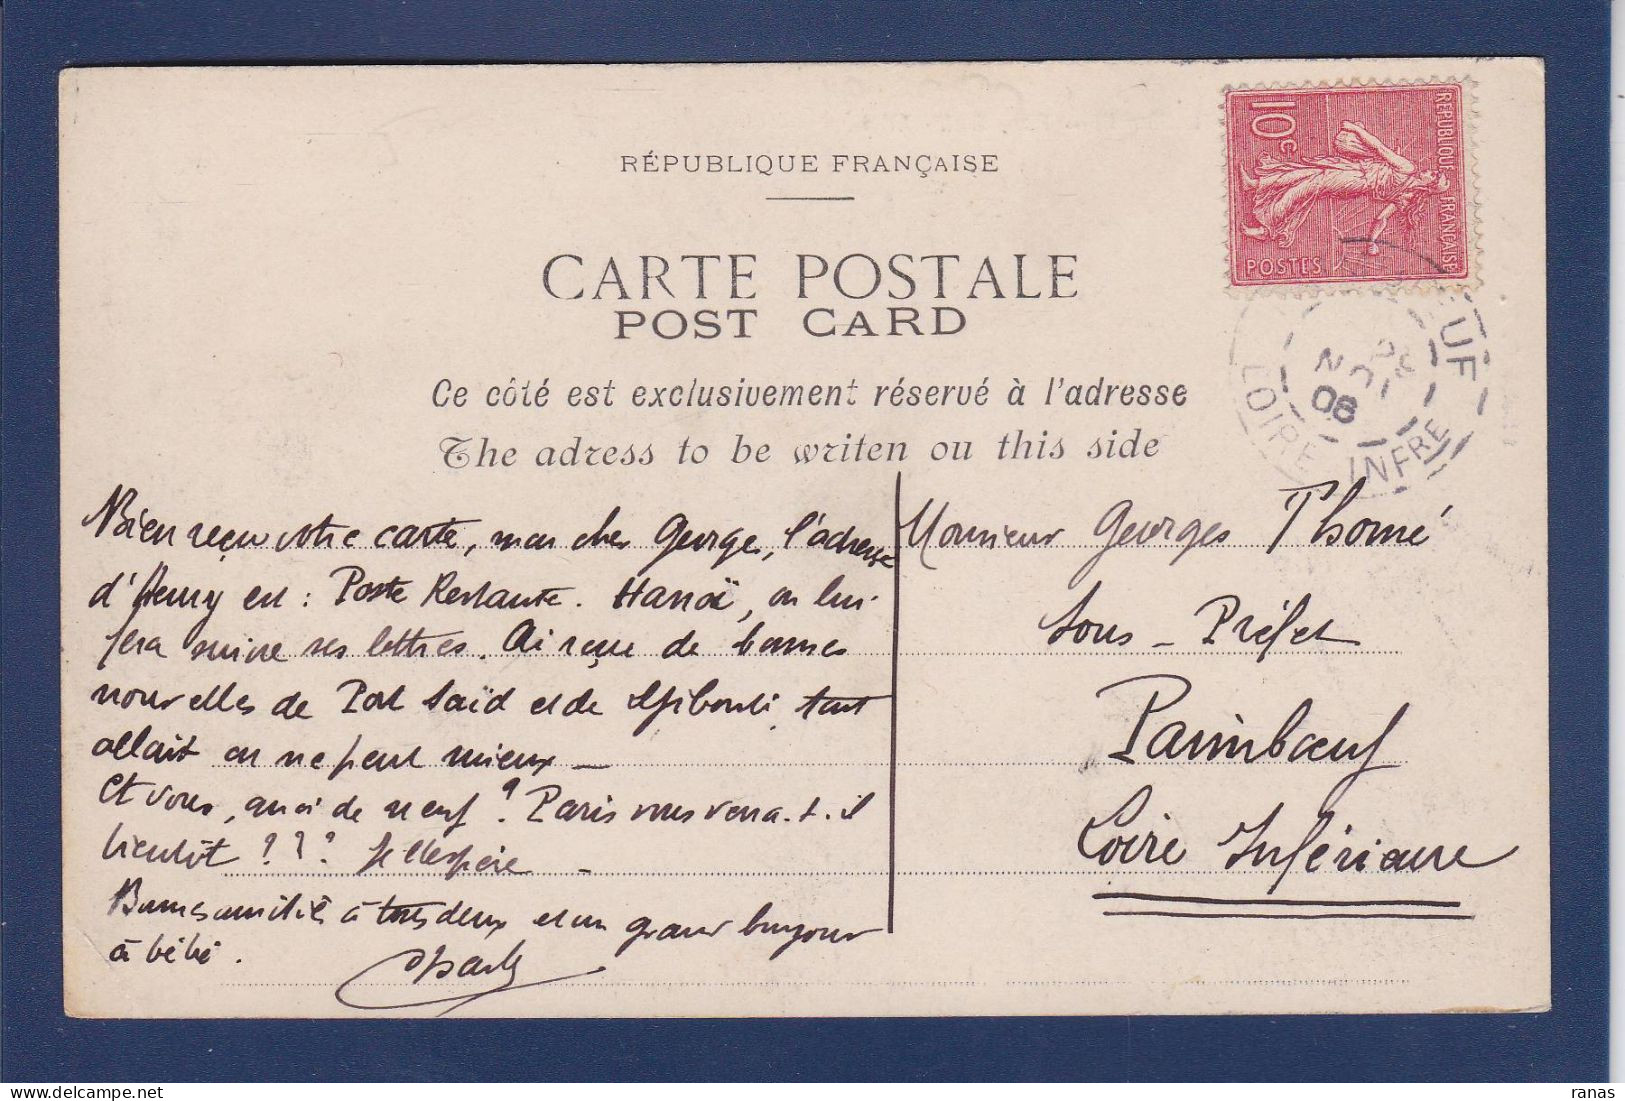 RÉPUBLIQUE FRANÇAISE
10c
REPUBLIQUE FRANÇAISE
POSTES
CARTE POSTALE
POST CARD
Ce côté est exclusivement réservé à l'adresse
The adress to be writen ou this side
UF
LOIRE INFRE
06
Bien reçu votre carte, mon cher George, l'adresse
d'Henry est : Poste Restante. Hanoï, on lui
fera suivre ses lettres. Ai reçu de bonnes
nouvelles de Port Saïd et de Djibouti, tout
allait on ne peut mieux —
Et vous, quoi de neuf ? Paris vous verra-t-il
bientôt ??? Je l'espère —
Bonnes amitiés à tous deux et un grand bonjour
à bébé.
Monsieur Georges Thomé
Sous-Préfet
Paimbœuf
Loire Inférieure
ranas